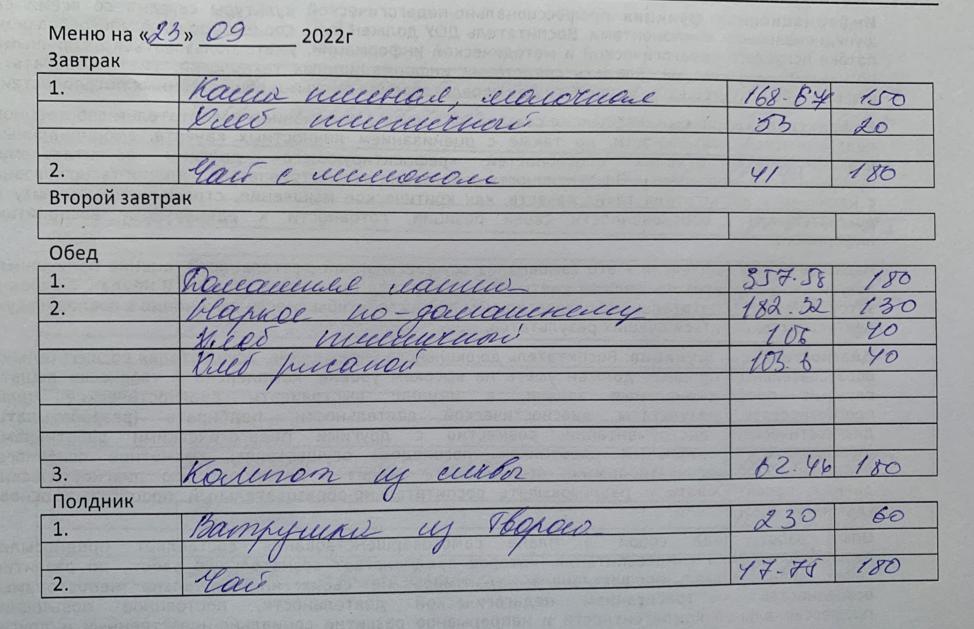 Меню на «23» 09 2022г
Завтрак
1. Каша пшенная, молочная 168-67 150
Хлеб пшеничный 53 20
2. Чай с лимоном 41 180
Второй завтрак
Обед
1. Домашняя лапша 357-58 180
2. Жаркое по-домашнему 182.32 130
Хлеб пшеничный 106 40
Хлеб ржаной 103.6 40
3. Компот из сливы 62-46 180
Полдник
1. Ватрушка из творога 230 60
2. Чай 47-75 180